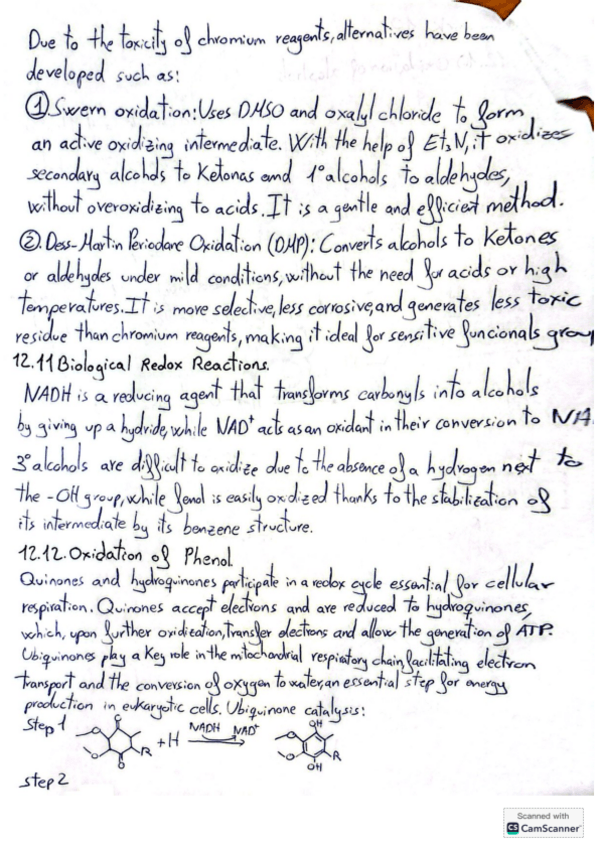 Due to the toxicity of chromium reagents, alternatives have been
developed such as:
① Swern oxidation: Uses DMSO and oxalyl chloride to form
an active oxidizing intermediate. With the help of Et₃N, it oxidizes
secondary alcohols to Ketonas and 1° alcohols to aldehydes,
without overoxidizing to acids. It is a gentle and efficient method.
②. Dess-Martin Periodane Oxidation (DMP): Converts alcohols to Ketones
or aldehydes under mild conditions, without the need for acids or high
temperatures. It is more selective, less corrosive, and generates less toxic
residue than chromium reagents, making it ideal for sensitive funcionals group
12.11 Biological Redox Reactions.
NADH is a reducing agent that transforms carbonyls into alcohols
by giving up a hydride, while NAD⁺ acts as an oxidant in their conversion to NA
3° alcohols are difficult to oxidize due to the absence of a hydrogen next to
the -OH group, while fenol is easily oxidized thanks to the stabilization of
its intermediate by its benzene structure.
12.12. Oxidation of Phenol
Quinones and hydroquinones participate in a redox cycle essential for cellular
respiration. Quinones accept electrons and are reduced to hydroquinones,
which, upon further oxidization, transfer electrons and allow the generation of ATP.
Ubiquinones play a Key role in the mitochondrial respiratory chain, facilitating electron
transport and the conversion of oxygen to water, an essential step for energy
production in eukaryotic cells. Ubiquinone catalysis:
Step 1
O O O R + H NADH NAD⁺ OH O O R OH
step 2
Scanned with
CS CamScanner